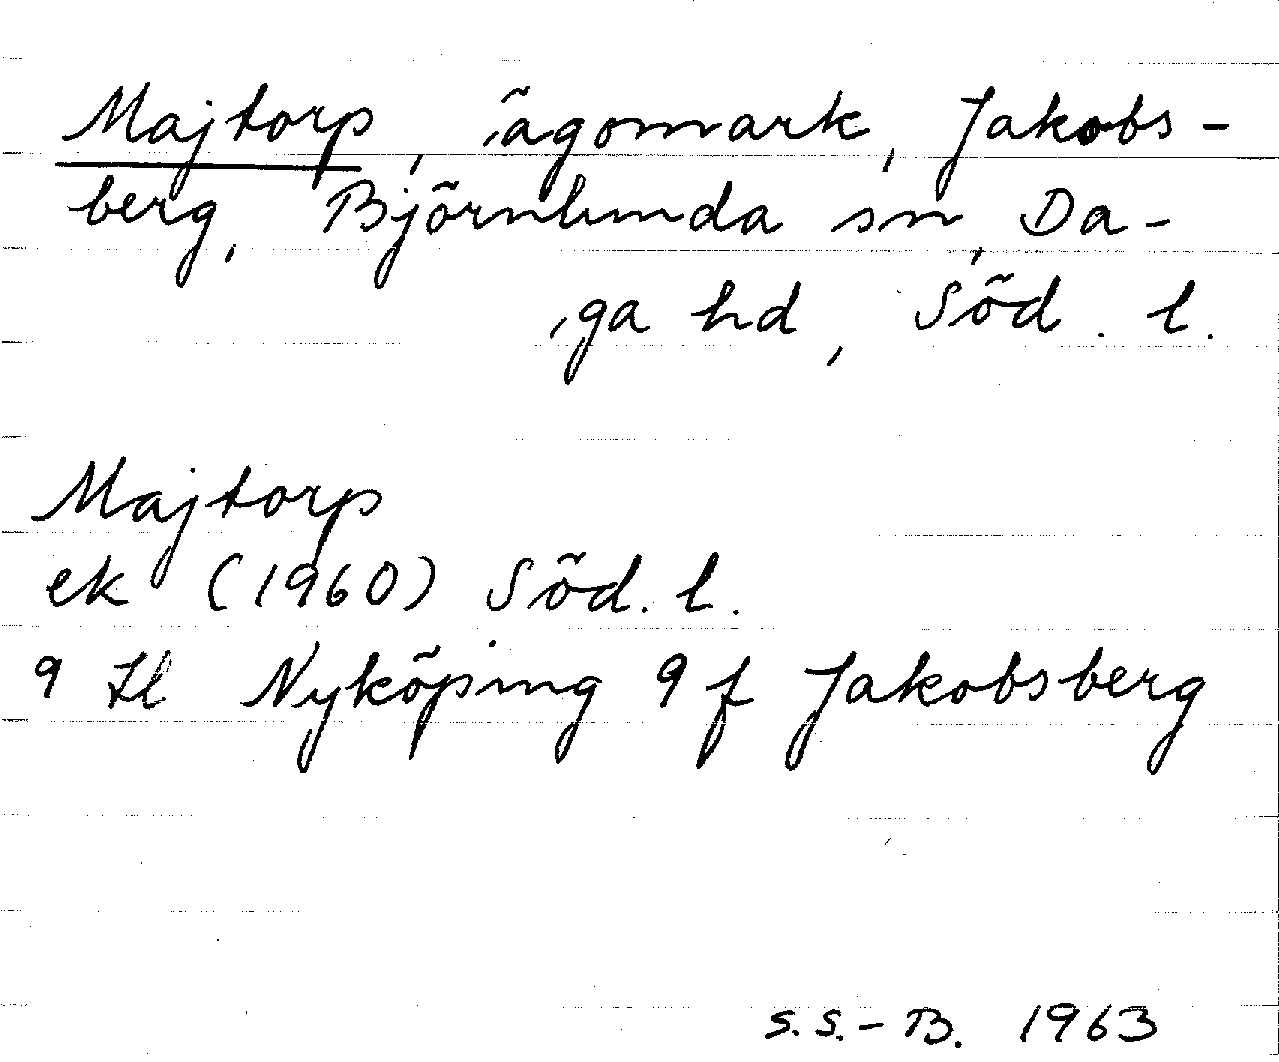 Majtorp, ägomark, Jakobs-
berg, Björnlunda sn, Da-
ga hd, Söd. l.
Majtorp
ek (1960) Söd. l.
9 Il Nyköping 9 f Jakobsberg
S.S.-B. 1963